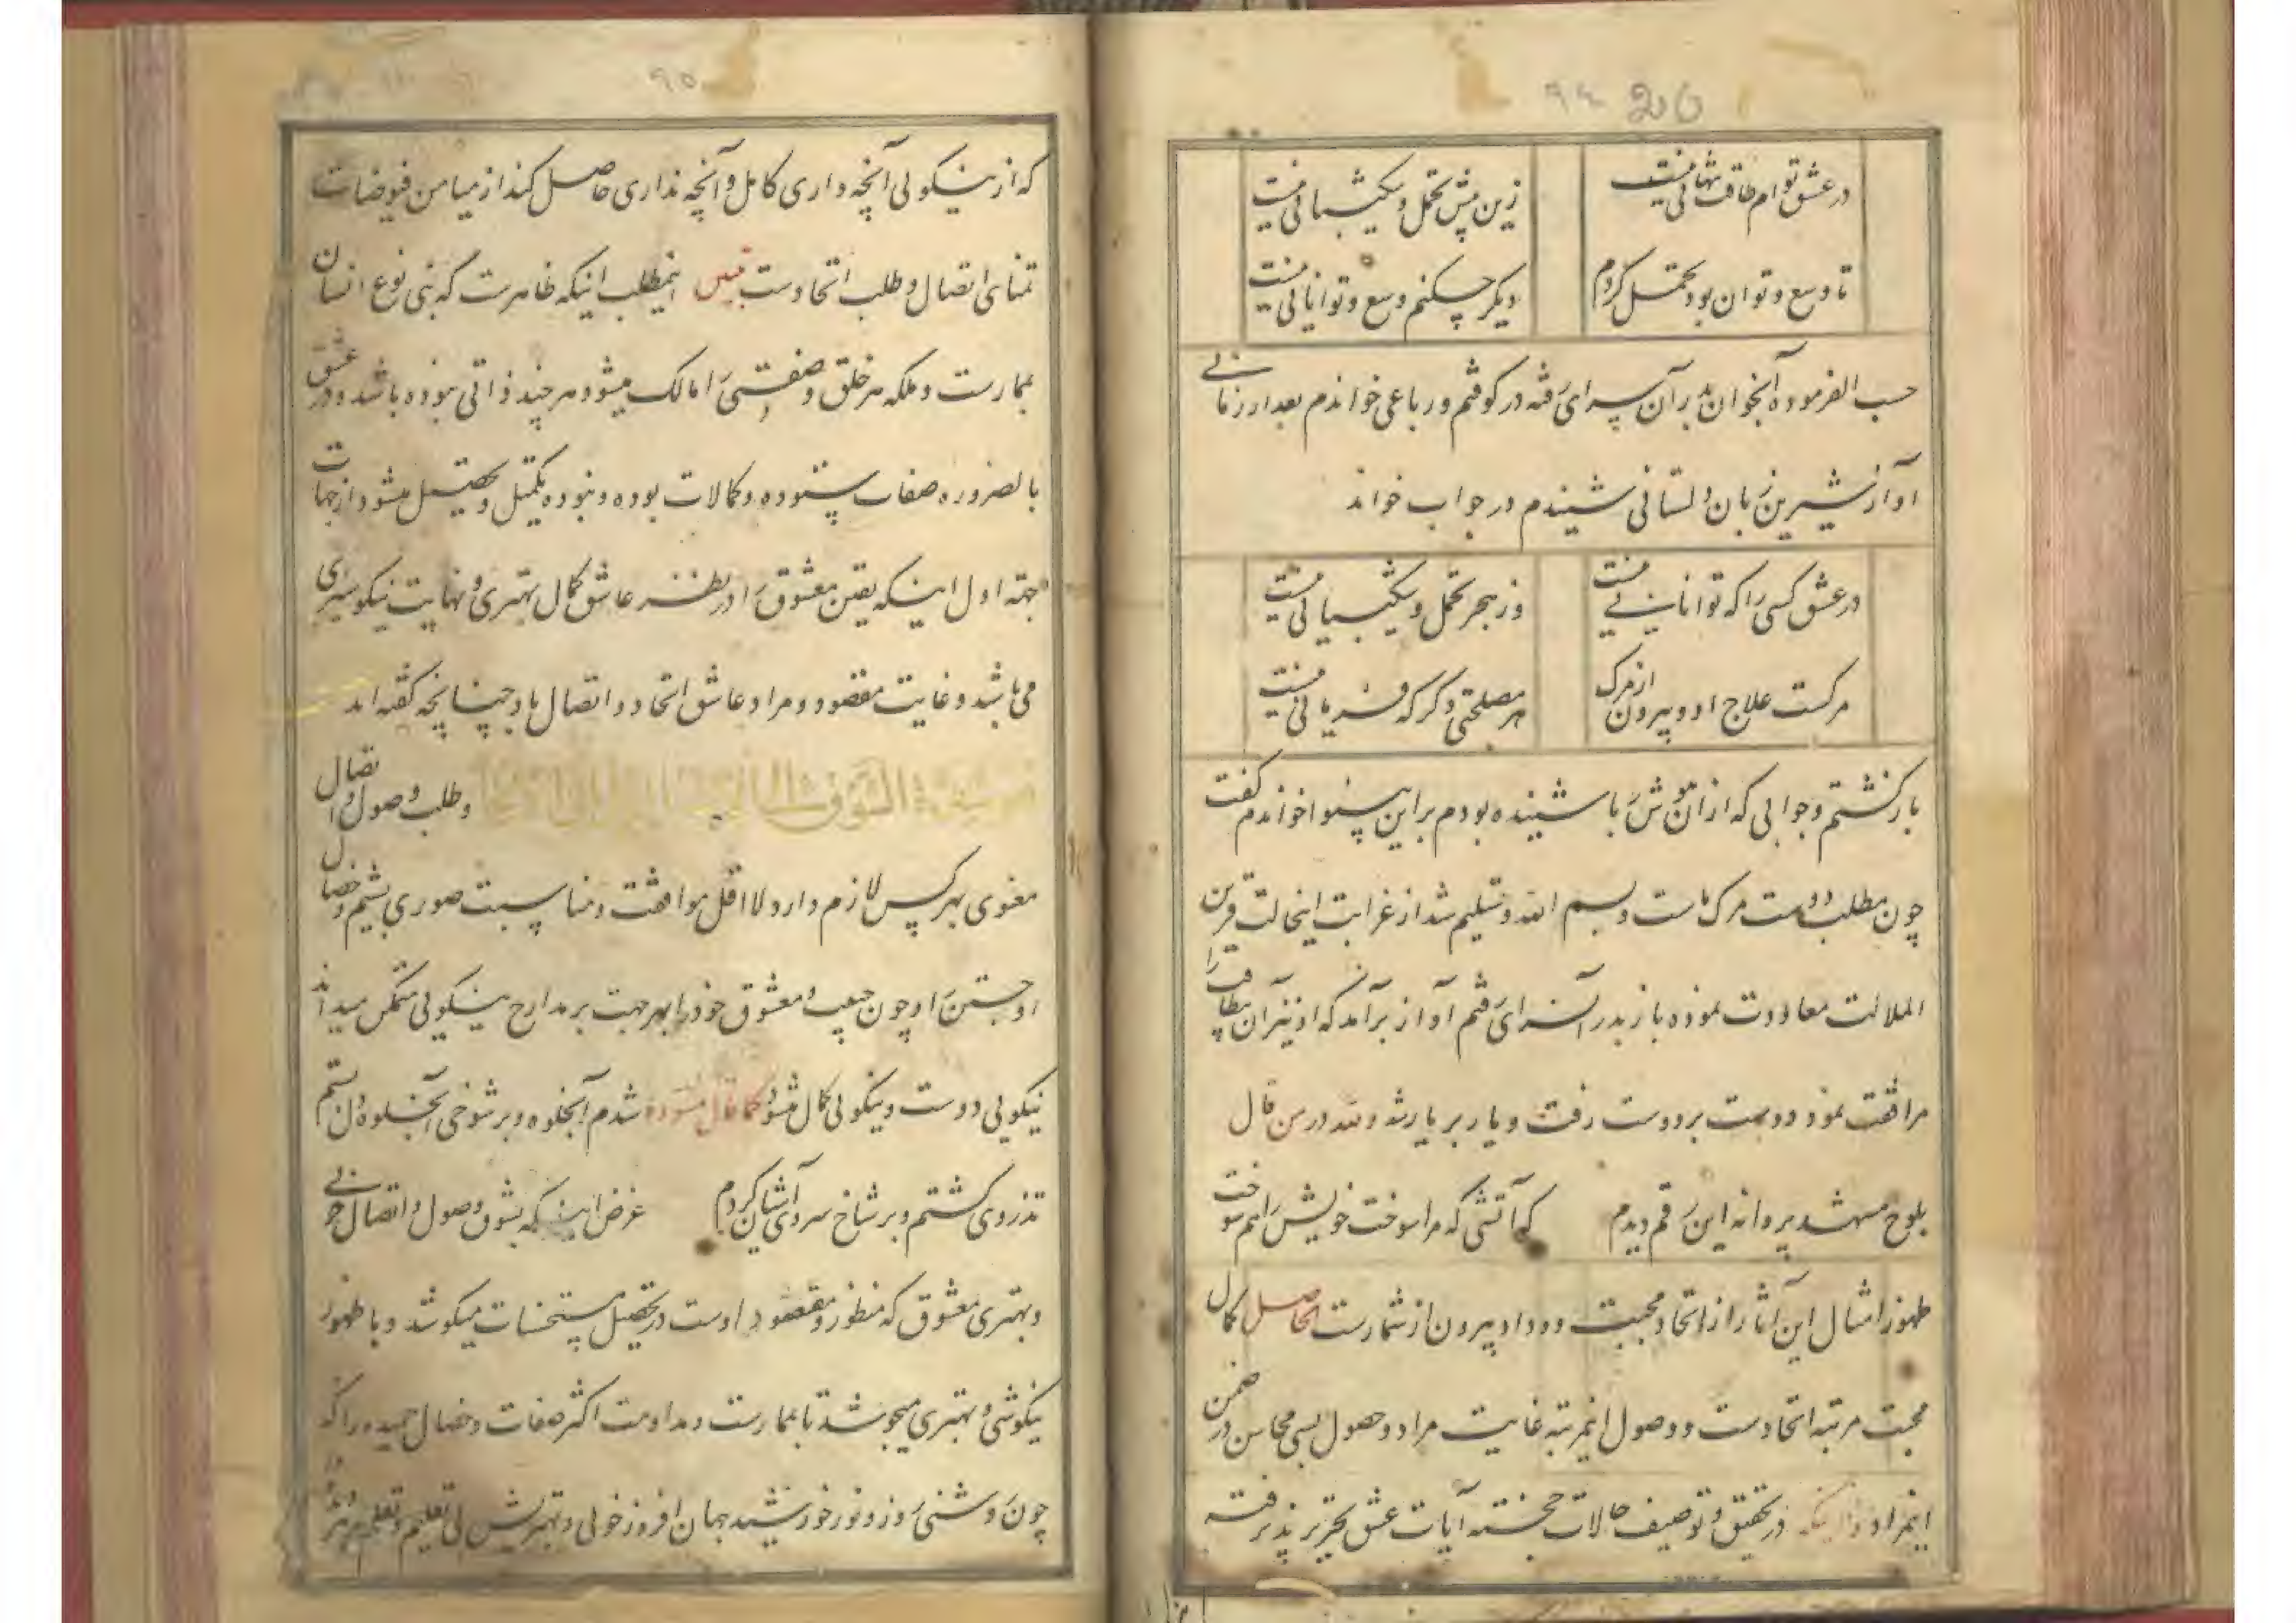 ۹۴
در عشق توام طاقت تنهائی نیست
زین پیش تحمل و شکیبائی نیست
تا وسع و توان بود تحمل کردم
دیگر چکنم وسع و توانائی نیست
حسب الفرموده آنجوان بدر آن سرای رفته در کوفتم و رباعی خواندم بعد از زمانی
آواز شیرین زبان دلستانی شنیدم در جواب خواند
در عشق کسی را که توانائی نیست
وز هجر تحمل و شکیبائی نیست
مرگست علاج او و بیرون از مرگ
هر مصلحتی دگر که فرمائی نیست
باز گشتم و جوابی که از آن شنیده بودم بر این بینوا خواندم گفت
چون مطلب دوست مرگ ماست و بسم الله و تسلیم شد از غرابت اینحالت قرین
الملالت معاودت نموده باز بدر آنسرای رفتم آواز برآمد که او نیز آن را
مرافقت نمود دوست بر دوست رفت و یار بر یار شد ولله در من قال
بلوح مشهد پروانه این رقم دیدم که آتشی که مرا سوخت خویش را هم سوخت
ظهور امثال این آثار از اتحاد و محبت و وداد بیرون از شمارست الحاصل کمال
محبت مرتبه اتحادست و وصول اینمرتبه غایت مراد و حصول بسی محاسن در ضمن
اینمراد در تحقیق و توصیف حالات خجسته آیات عشق تحریر پذیرفته
۹۵
که از نیکوئی آنچه داری کامل و آنچه نداری حاصل کند از میامن فیوضات
تمنای اتصال و طلب اتحادست اینمطلب اینکه ظاهرست که بنی نوع انسان
بممارست و ملکه هر خلق و صفتی را مالک میشود هر چند ذاتی نبوده باشد و در عشق
بالضروره صفات ستوده و کمالات بوده و نبوده تکمیل و تحصیل میشود از جهات
جهة اول اینکه یقین معشوق را در نظر عاشق کمال بهتری و نهایت نیکو سیری
می باشد و غایت مقصود و مراد عاشق اتحاد و اتصال باو چنانچه گفته اند
و طلب وصول و اتصال
معنوی بهر کس لازم دارد لااقل موافقت و مناسبت صوری و خصال
او جستن را و چون حبیب و معشوق خود را بهر جهت بر مدارج نیکوئی متمکن میداند
نیکویی دوست و نیکوئی کمال میشود کما قال شدم آبجلوه و بر شوخی
تذروی گشتم و بر شاخ سروی آشیان کردم غرض اینکه بشوق وصول و اتصال
و بهتری معشوق که منظور و مقصود اوست در تحصیل مستحسنات میکوشد و با ظهور
نیکوئی و بهتری میجوشد تا بممارست و مداومت اکثر صفات و خصال حمیده را که
چون روشنی روز و نور خورشید جهان افروز خوبی و بهتریش بی تعلیم و تعلم